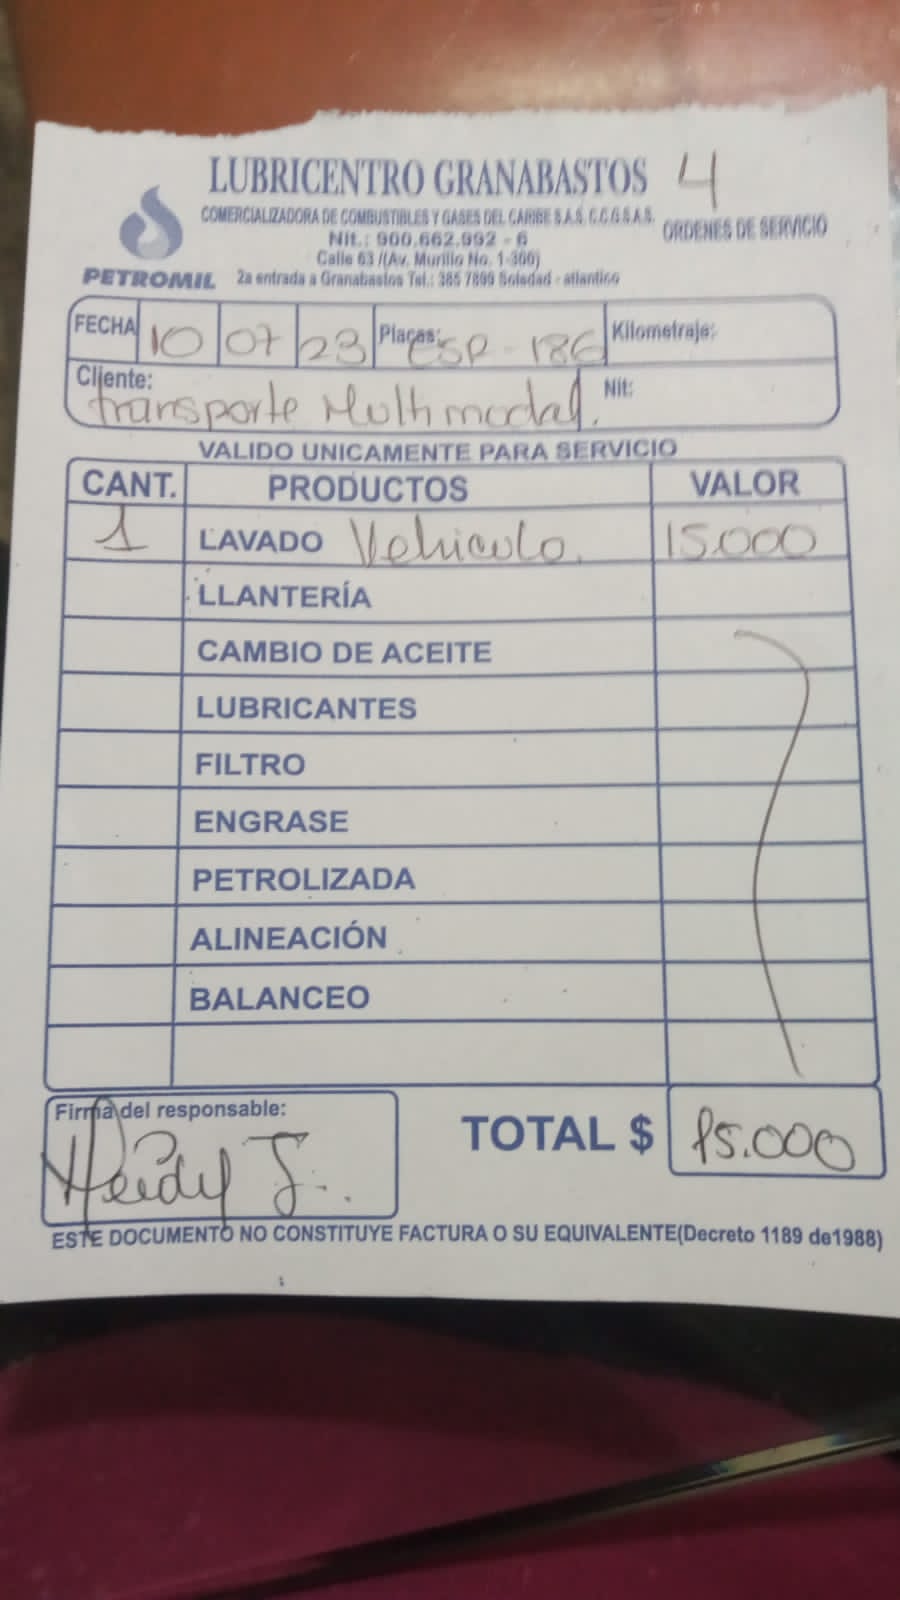 LUBRICENTRO GRANABASTOS 4
COMERCIALIZADORA DE COMBUSTIBLES Y GASES DEL CARIBE S.A.S. C.C.G.S.A.S.
ORDENES DE SERVICIO
Nit.: 900.662.992 - 6
Calle 63 /(Av. Murillo No. 1-300)
PETROMIL 2a entrada a Granabastos Tel.: 385 7899 Soledad - atlantico
FECHA 10 07 23 Placas: ESP - 186 Kilometraje:
Cliente: transporte Multimodal. Nit:
VALIDO UNICAMENTE PARA SERVICIO
CANT. PRODUCTOS VALOR
1 LAVADO Vehiculo. 15.000
LLANTERÍA
CAMBIO DE ACEITE
LUBRICANTES
FILTRO
ENGRASE
PETROLIZADA
ALINEACIÓN
BALANCEO
Firma del responsable:
Heidy J.
TOTAL $ 15.000
ESTE DOCUMENTO NO CONSTITUYE FACTURA O SU EQUIVALENTE(Decreto 1189 de1988)